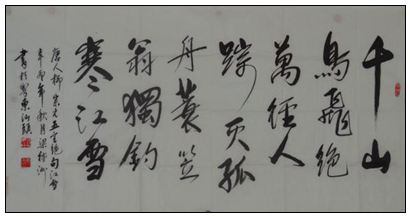 千山
鳥飛絕
萬徑人
踪灭孤
舟蓑笠
翁獨釣
寒江雪
唐人柳宗元五言絕句江雪
年秋月梁
書於粵東